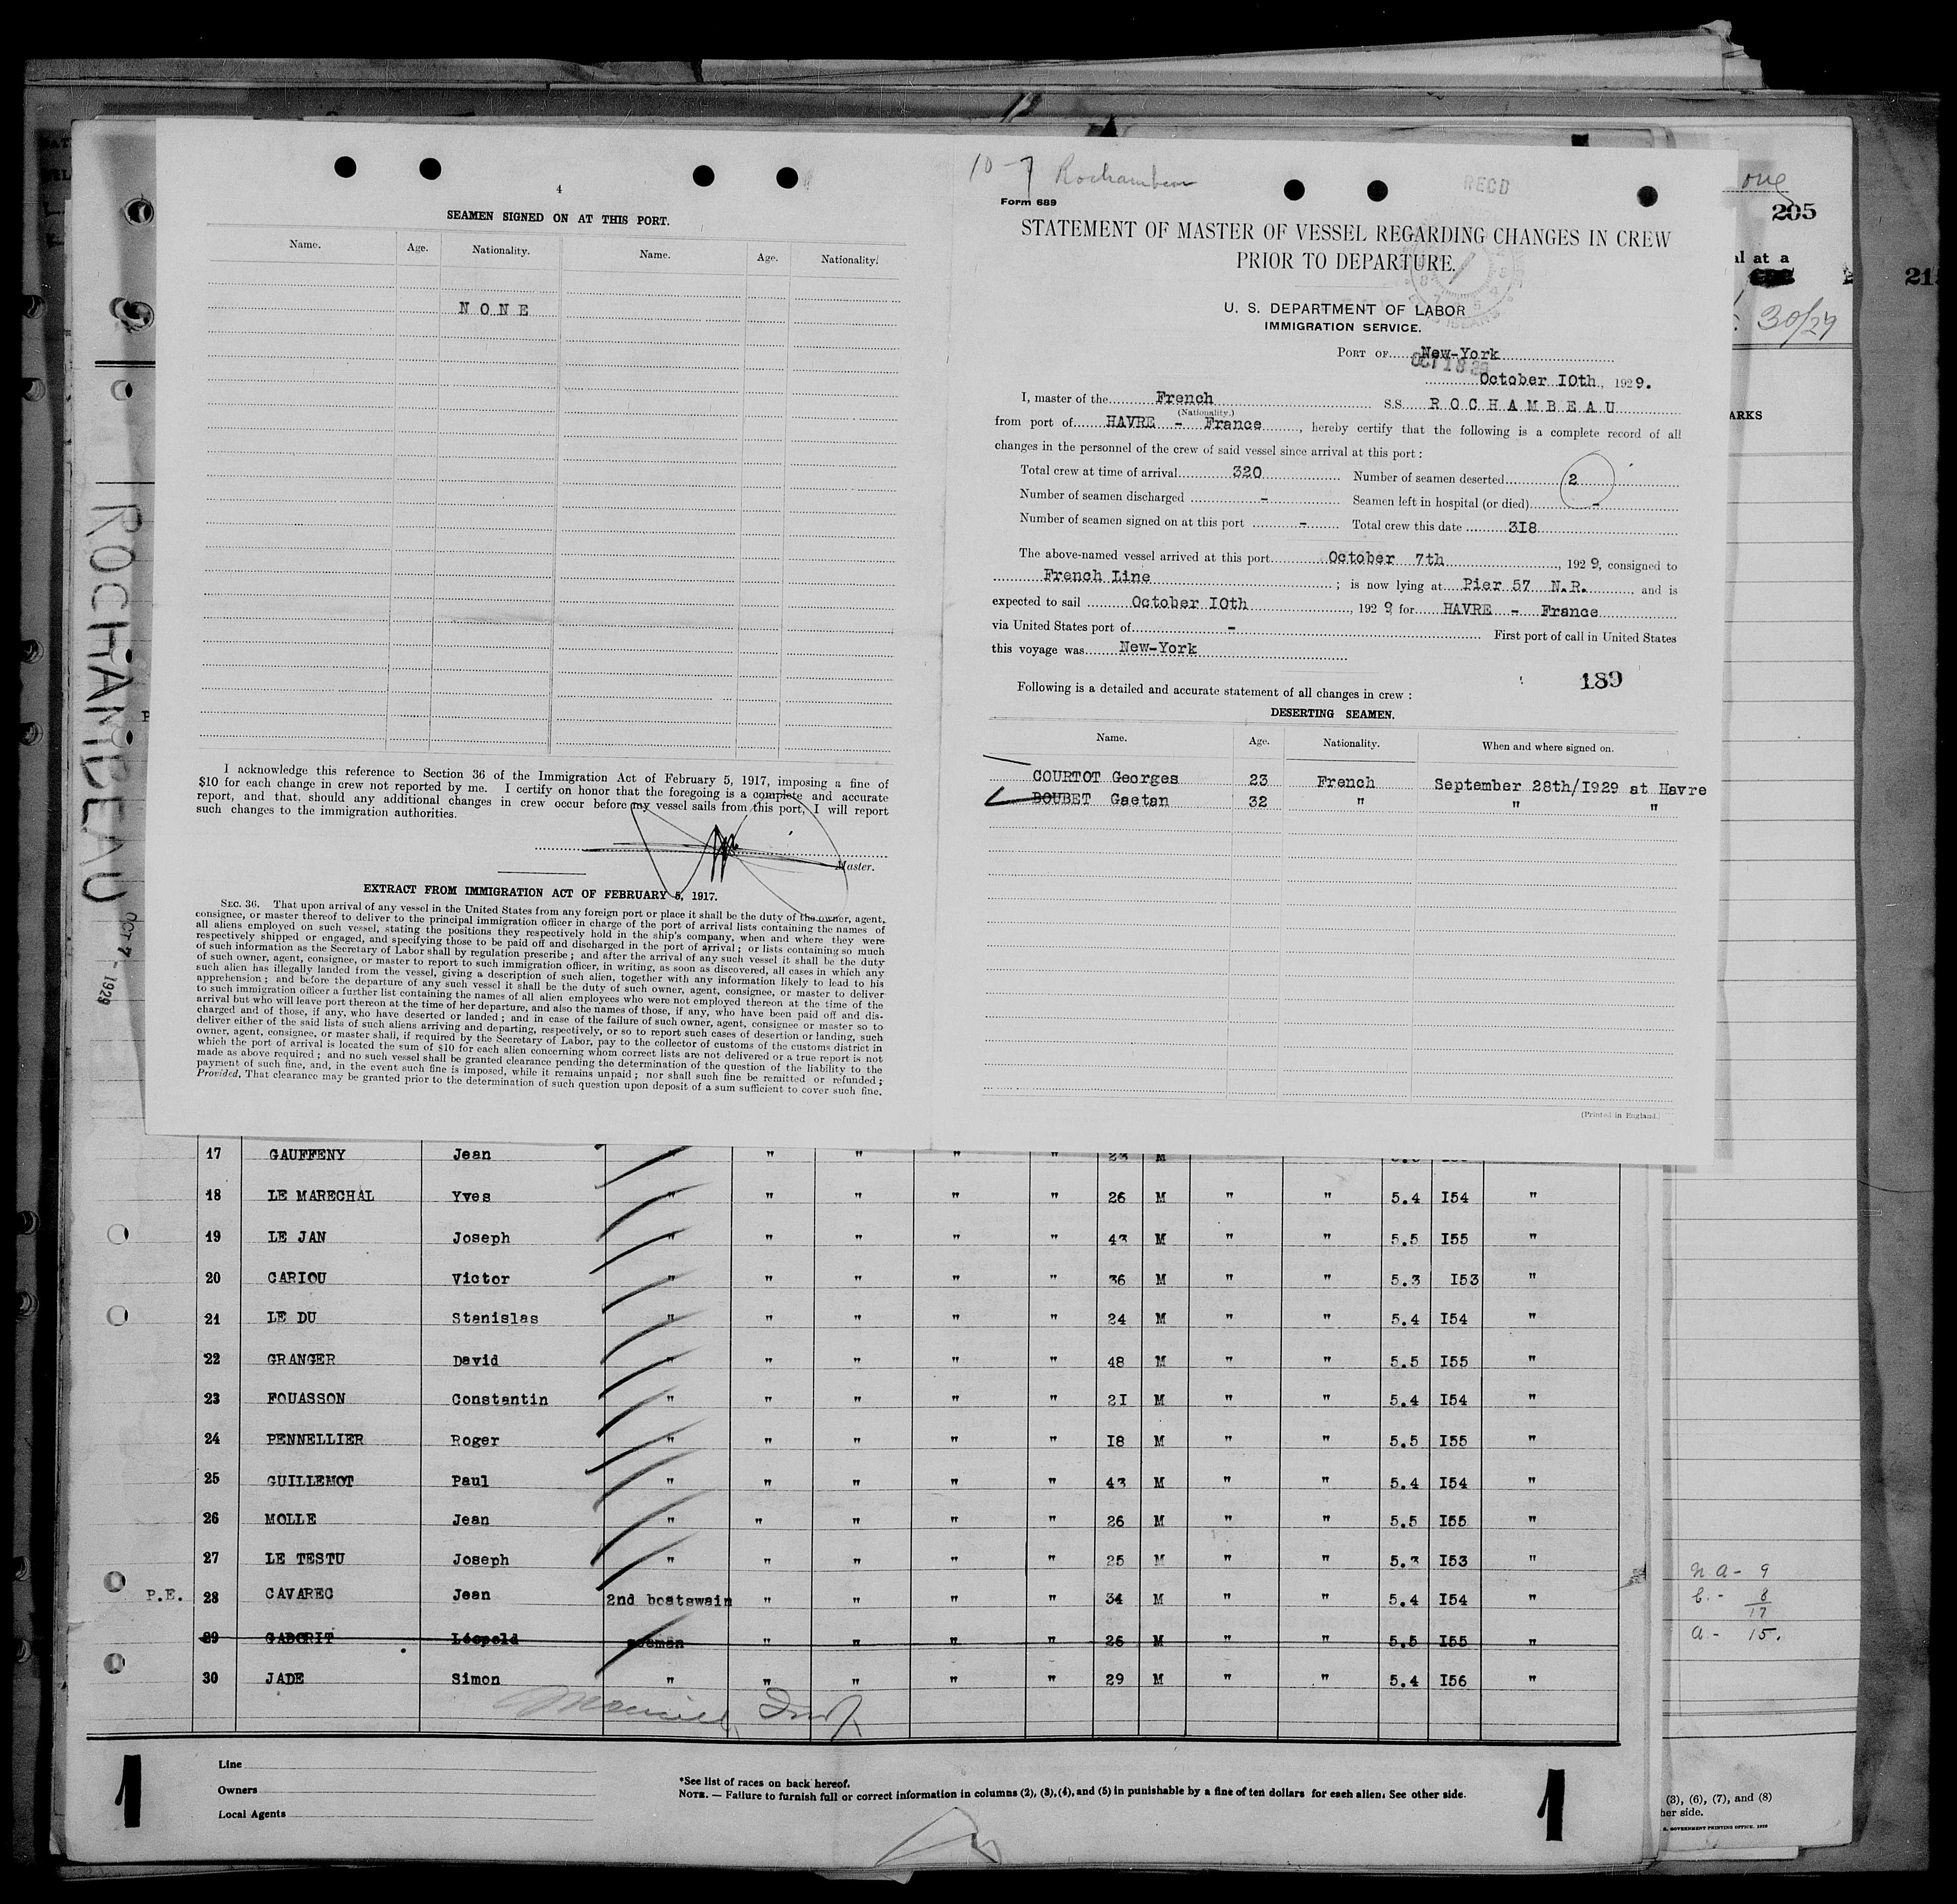 4
SEAMEN SIGNED ON AT THIS PORT.
Name. Age. Nationality. Name. Age. Nationality.
NONE
I acknowledge this reference to Section 36 of the Immigration Act of February 5, 1917, imposing a fine of
$10 for each change in crew not reported by me. I certify on honor that the foregoing is a complete and accurate
report, and that should any additional changes in crew occur before my vessel sails from this port, I will report
such changes to the immigration authorities.
Master.
EXTRACT FROM IMMIGRATION ACT OF FEBRUARY 5, 1917.
SEC. 36. That upon arrival of any vessel in the United States from any foreign port or place it shall be the duty of the owner, agent,
consignee, or master thereof to deliver to the principal immigration officer in charge of the port of arrival lists containing the names of
all aliens employed on such vessel, stating the positions they respectively hold in the ship's company, when and where they were
respectively shipped or engaged, and specifying those to be paid off and discharged in the port of arrival; or lists containing so much
of such information as the Secretary of Labor shall by regulation prescribe; and after the arrival of any such vessel it shall be the duty
of such owner, agent, consignee, or master to report to such immigration officer, in writing, as soon as discovered, all cases in which any
such alien has illegally landed from the vessel, giving a description of such alien, together with any information likely to lead to his
apprehension; and before the departure of any such vessel it shall be the duty of such owner, agent, consignee, or master to deliver
to such immigration officer a further list containing the names of all alien employees who were not employed thereon at the time of the
arrival but who will leave port thereon at the time of her departure, and also the names of those, if any, who have been paid off and dis-
charged and of those, if any, who have deserted or landed; and in case of the failure of such owner, agent, consignee or master so to
deliver either of the said lists of such aliens arriving and departing, respectively, or so to report such cases of desertion or landing, such
owner, agent, consignee, or master shall, if required by the Secretary of Labor, pay to the collector of customs of the customs district in
which the port of arrival is located the sum of $10 for each alien concerning whom correct lists are not delivered or a true report is not
made as above required; and no such vessel shall be granted clearance pending the determination of the question of the liability to the
payment of such fine, and, in the event such fine is imposed, while it remains unpaid; nor shall such fine be remitted or refunded;
Provided, That clearance may be granted prior to the determination of such question upon deposit of a sum sufficient to cover such fine.
10-7 Rochambeau
RECD
Form 689
STATEMENT OF MASTER OF VESSEL REGARDING CHANGES IN CREW
PRIOR TO DEPARTURE.
U. S. DEPARTMENT OF LABOR
IMMIGRATION SERVICE.
PORT OF New-York
October 10th, 1929.
I, master of the French S.S. ROCHAMBEAU
(Nationality.)
from port of HAVRE - France, hereby certify that the following is a complete record of all
changes in the personnel of the crew of said vessel since arrival at this port:
Total crew at time of arrival 320 Number of seamen deserted 2
Number of seamen discharged - Seamen left in hospital (or died) -
Number of seamen signed on at this port - Total crew this date 318
The above-named vessel arrived at this port October 7th, 1929, consigned to
French Line; is now lying at Pier 57 N.R., and is
expected to sail October 10th, 1929 for HAVRE - France
via United States port of - First port of call in United States
this voyage was New-York
189
Following is a detailed and accurate statement of all changes in crew:
DESERTING SEAMEN.
Name. Age. Nationality. When and where signed on.
COURTOT Georges 23 French September 28th/1929 at Havre
BOUBET Gaetan 32 " " "
(Printed in England.)
ROCHAMBEAU
OCT 7 - 1929
one
205
al at a
21
30/29
ARKS
17 GAUFFENY Jean " " " " " 23 M
18 LE MARECHAL Yves " " " " " 26 M " " 5.4 I54 "
19 LE JAN Joseph " " " " " 43 M " " 5.5 I55 "
20 CARIOU Victor " " " " " 36 M " " 5.3 I53 "
21 LE DU Stanislas " " " " " 24 M " " 5.4 I54 "
22 GRANGER David " " " " " 48 M " " 5.5 I55 "
23 FOUASSON Constantin " " " " " 2I M " " 5.4 I54 "
24 PENNELLIER Roger " " " " " I8 M " " 5.5 I55 "
25 GUILLEMOT Paul " " " " " 43 M " " 5.4 I54 "
26 MOLLE Jean " " " " " 26 M " " 5.5 I55 "
27 LE TESTU Joseph " " " " " 25 M " " 5.3 I53 "
P.E. 28 CAVAREC Jean 2nd boatswain " " " " 34 M " " 5.4 I54 "
29 GABORIT Léopold seaman " " " " 26 M " " 5.5 I55 "
30 JADE Simon " " " " " 29 M " " 5.4 I56 "
na - 9
b. - 8
17
a - 15.
1
Line
Owners
Local Agents
*See list of races on back hereof.
NOTE. — Failure to furnish full or correct information in columns (2), (3), (4), and (5) in punishable by a fine of ten dollars for each alien. See other side.
1
(3), (6), (7), and (8)
her side.
GOVERNMENT PRINTING OFFICE.